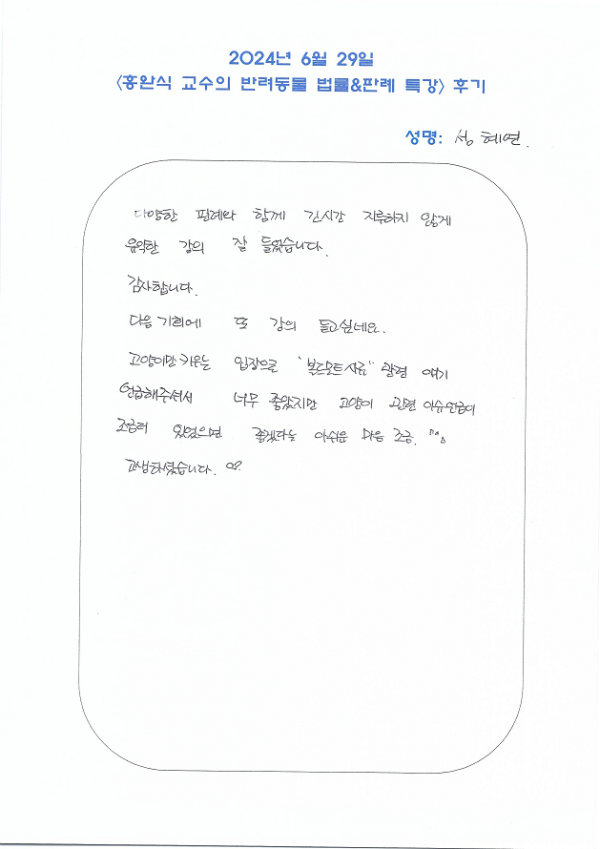 2024년 6월 29일
<홍완식 교수의 반려동물 법률&판례 특강> 후기
성명: 성혜연.
다양한 판례와 함께 긴시간 지루하지 않게
유익한 강의 잘 들었습니다.
감사합니다.
다음 기회에 또 강의 듣고싶네요.
고양이만 키우는 입장으로 "볼드모트사료" 관련 얘기
언급해주셔서 너무 좋았지만 고양이 관련 이슈언급이
조금더 있었으면 좋겠다는 아쉬운 마음 조금. ^^;
고생하셨습니다.